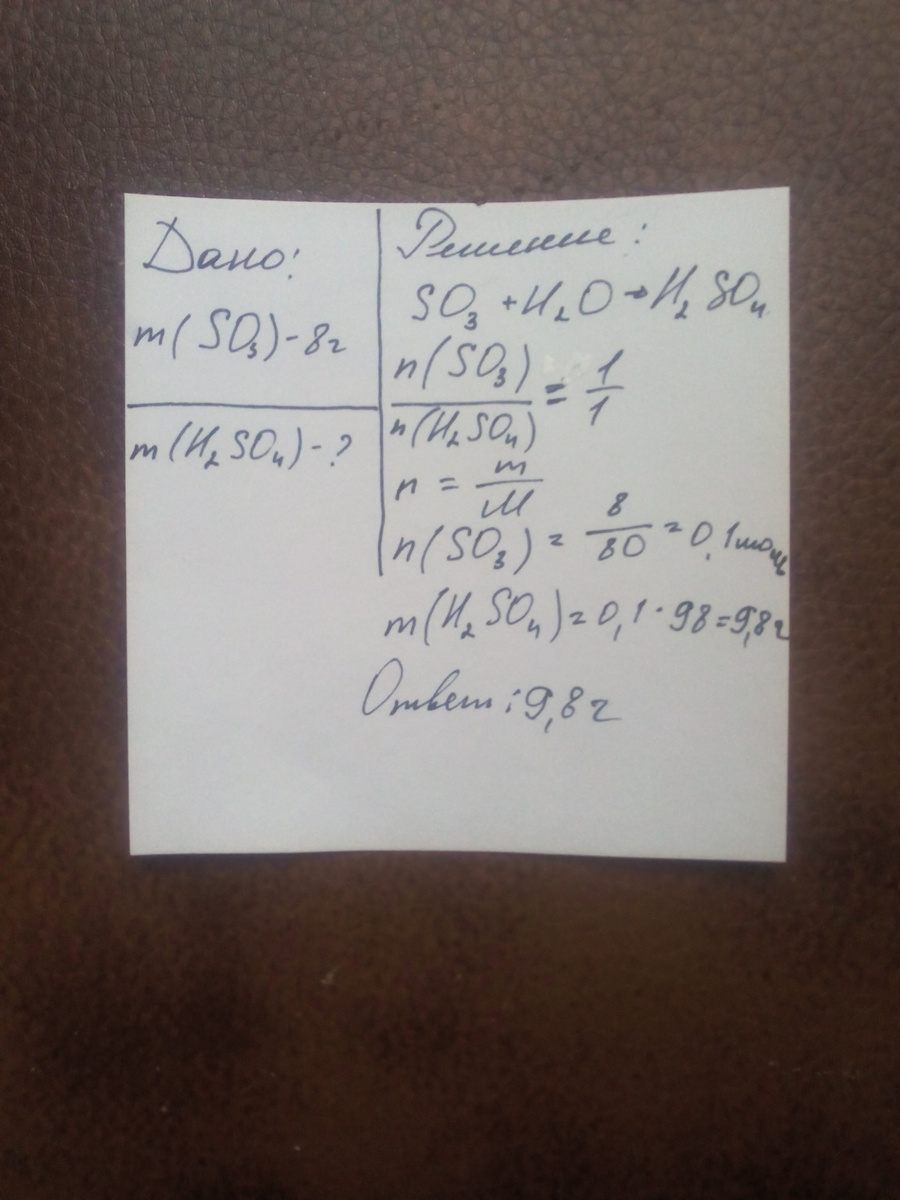 Дано:
m(SO₃) - 8г
m(H₂SO₄) - ?
Решение:
SO₃ + H₂O → H₂SO₄
n(SO₃) / n(H₂SO₄) = 1/1
n = m/M
n(SO₃) = 8/80 = 0,1моль
m(H₂SO₄) = 0,1 · 98 = 9,8г
Ответ: 9,8г